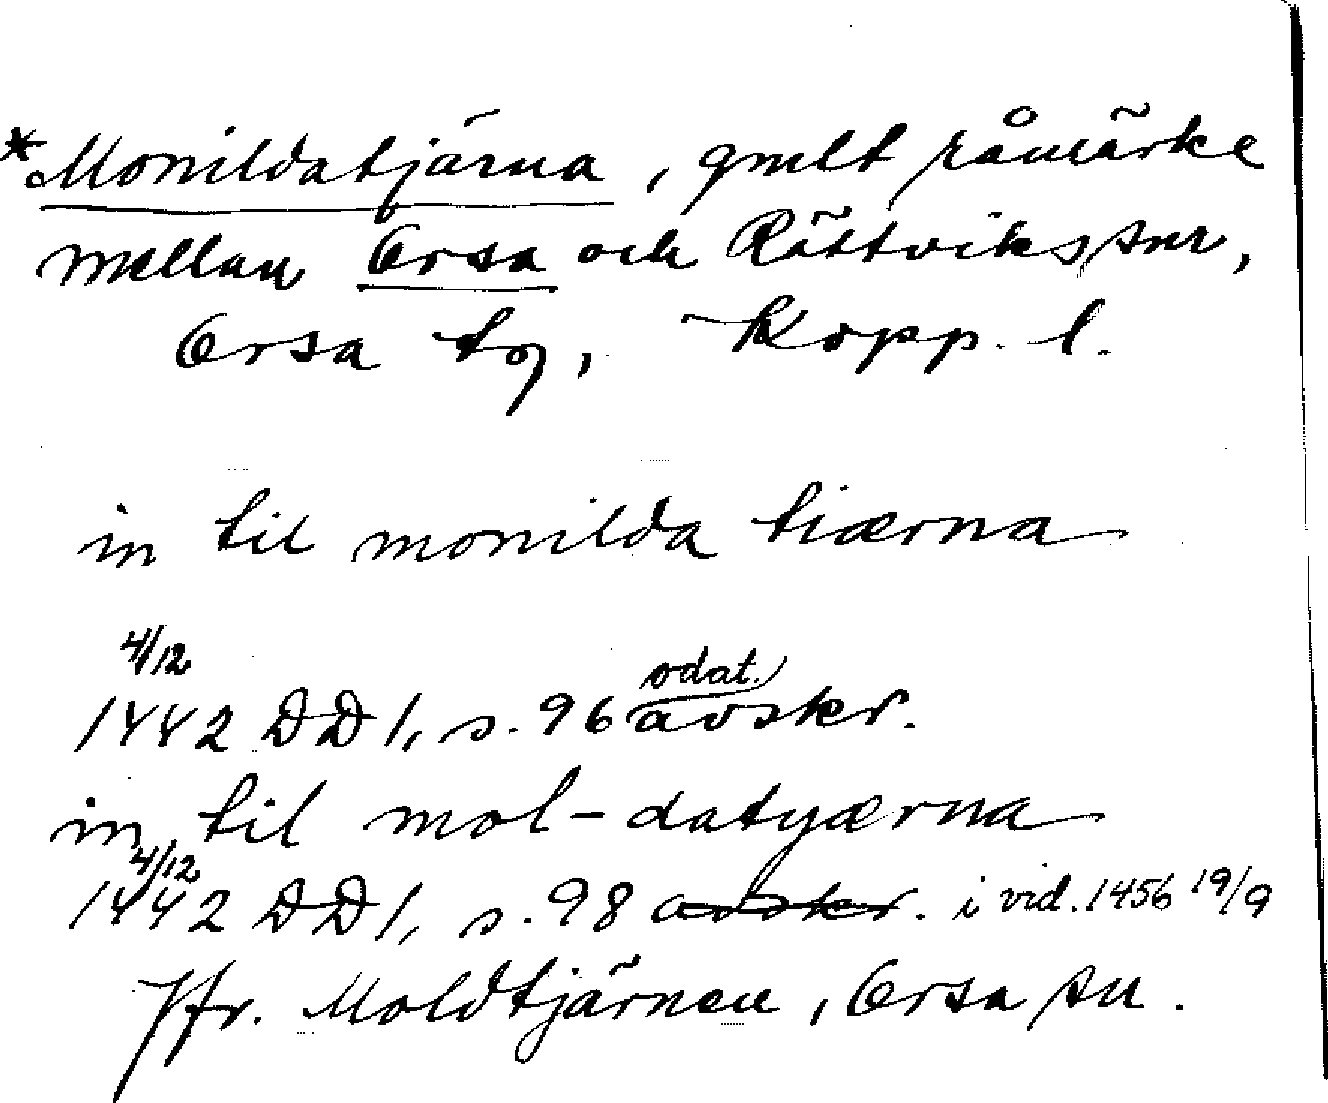 *Monildatjärna, gmlt råmärke
mellan Orsa och Rättviks snr,
Orsa tg, Kopp. l.
in til monilda tiærna
4/12
odat.
1442 DD 1, s. 96 avskr.
in til mol-datyærna
4/12
1442 DD 1, s. 98 avskr. i vid. 1456 19/9
Jfr. Moldtjärnen, Orsa sn.